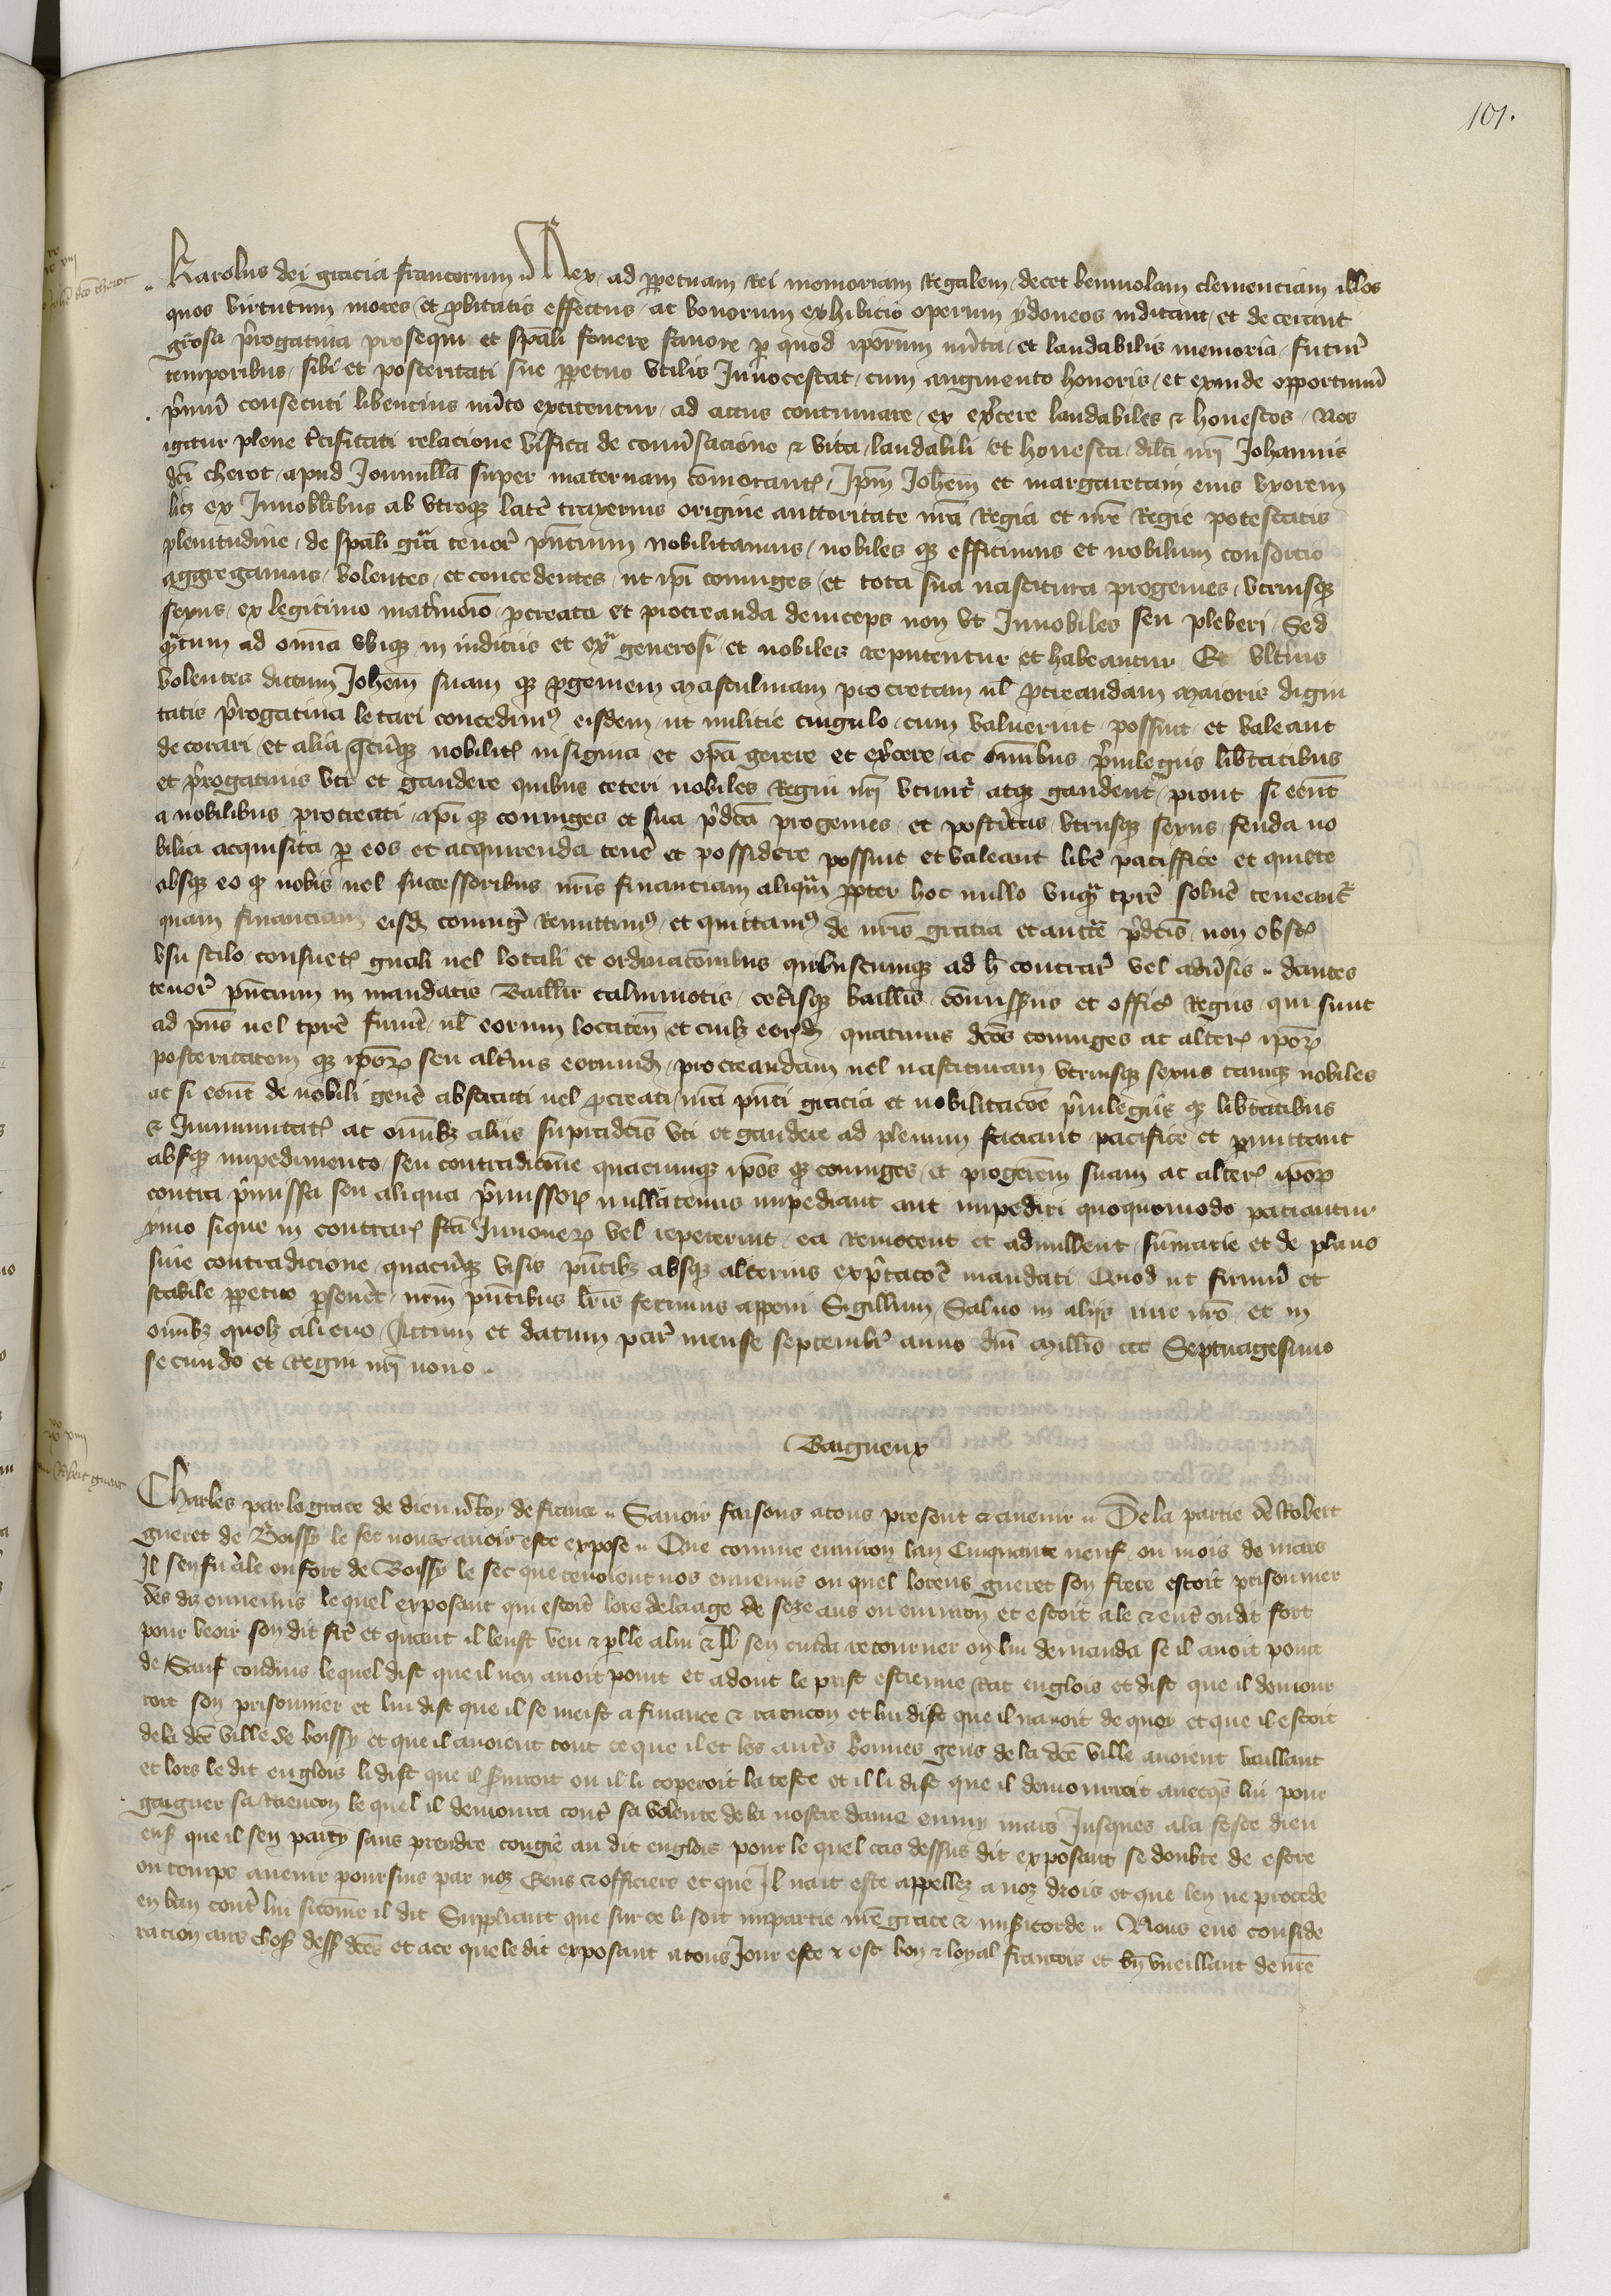 101.
Karolus dei gracia francorum Rex ad ppetuam Rei memoriam Regalem decet beniuolam clemenciam illos
quos virtutum mores et pbitatis effectus ac bonorum exhibicio operum ydoneos inditant et decerant
grosa progatiua prosequi et spali fouere fauore p quod ipsorum mita et laudabilis memoria futur
temporibus sibi et posteritati sue ppetuo vtilis Innotescat cum augmento honoris et exinde opportunu
pmiu consecuti libencius mito excitentur ad actus continuare ex excere laudabiles & honestos Nos
igitur plene ctifitati relacione vifica de conusacione & vita laudabili et honesta dilci nri Johannis
dci cherot apud Jonuillla super maternam comorant Ipm Johem et margaretam eius vxorem
licz ex Innobilibus ab vtroqz late traxerius origine auttoritate nra Regia et nre Regie potestatis
plenitudine de spali gra tenor pncium nobilitamus nobiles qz efficimus et nobilium consorcio
aggregamus volentes et concedentes ut ipi coniuges et tota sua nascitura progenies vtriusqz
sexus ex legitimo matrimoio pcreata et procreanda deinceps non vt Innobiles seu pleberi Sed
qtum ad omia vbiqz in indiciis et exa generosi et nobiles reputentur et habeantur Et vltius
volentes dictum Johem suam qz pgeniem masculinam procretam ul pcreandam maioris digni
tatis progatiua letari concedim9 eisdem ut militie cingulo cum valuerint possint et valeant
decorari et alia qcuqz nobilit insignia et opa gerere et excere ac omibus priuilegiis libtatibus
et progatiuis vti et gaudere quibus ceteri nobiles Regni nri vtunt atqz gaudent prout si eent
a nobilibus procreati ipi qz coniuges et sua pdca progenies et postitas vtriusqz sexus feuda no
bilia acquisita p eos et acquirenda tene et possidere possint et valeant libe paciffice et quiete
absqz eo qz nobis uel successoribus nris financiam aliqua ppter hoc nullo vnqa tpre solue teneant
quam financiam eisd coniug Remittim9 et quittam9 de nris gracia et auttte pdcis non obst
vsu stilo consuet gnali uel locali et ordinacionibus quibuscumqz ad h contrar vel aduisis dantes
tenor pncium in mandatis Bailliu caluimotis cetisqz bailliis comissius et offic Regiis qui sunt
ad pns uel tpre fuint ul eorum locaten et cuilz eord quatinus dcos coniuges ac alter ipor
posteritatem qz ipor seu altius eorumd procreandam uel nascituram vtriusqz sexus tanqz nobiles
ac si eent de nobili gene abstracti uel pcreati nra pnti gracia et nobilitacoe priuilegiis qz libtatibus
& Immunitat ac omibz aliis supradcis vti et gaudere ad plenum faciant pacifice et pmittant
absqz impedimento seu contradicione quacumqz ipos qz coniuges et progeniem suam ac alter ipor
contra pmissa seu aliqua pmissor nullatenus impediant aut impediri quoquomodo paciantur
ymo sique in contrar fca Inuener vel repererint ea reuocent et adnullent sumarie et de plano
sine contradicione quacuqz visis pntibz absqz alterius exptacoe mandati Quod ut firmu et
stabile ppetuo pseuet nrm pntibus lris fecimus apponi Sigillum Saluo in aliis iure nro et in
omibz quolz alieno Actum et datum par mense septembr anno dni millio ccc Septuagesimo
secundo et Regni nri nono
Baigneux
Charles par la grace de dieu Roy de france Sauoir faisons atous presenz & auenir De la partie de Robert
gueret de Boissy le sec nous auoir este expose Que comme enuiron lan Cinquante neuf ou mois de mars
Il sen fu ale ou fort de Boissy le sec que tenoient nos ennemis ou quel lorens gueret son frere estoit prisonnier
des dis ennemis le quel exposant qui estoit lors de laage de seze ans ou enuiron et estoit ale & ent ou dit fort
pour veoir son dit fre et quant il leust veu & plle alui & Il sen cuida retourner on lui demanda se il auoit point
de Sauf conduis lequel dist que il nen auoit point et adont le prist estienne Rat englois et dist que il demour
roit son prisonnier et lui dist que il se meist a finance & raencon et lui dist que il nauoit de quoy et que il estoit
de la dce ville de boissy et que il auoient tout ce que il et les autrs bonnes gens de la dce ville auoient vaillant
et lors le dit englois li dist que il finroit ou il li coperoit la teste et il li dist que il demourroit auecqs lui pour
gaigner sa Raencon le quel il demoura cont sa volente de la nostre dame enmy mars Jusques ala feste dieu
ens que il sen party sans prendre congie au dit englois pour le quel cas dessus dit exposant se doubte de estre
ou temps auenir poursius par noz Gens & officiers et que Il nait este appellez a noz drois et que len ne procede
en ban cont lui sicome il dit Suppliant que sur ce li soit impartie nre grace & misicorde Nous eue conside
racion aus chos dess dces et ace que le dit exposant atous Jour este & est bon & loyal francois et bn vueillant de nre